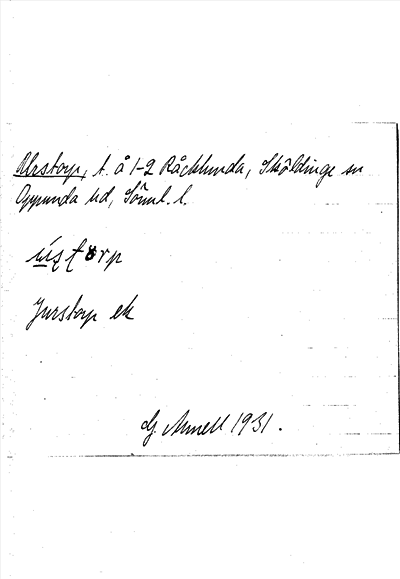 Urstorp, t. å 1-2 Råcklunda, Sköldinge sn
Oppunda hd, Söml. l.
Jurstorp ek
G. Annell 1931.